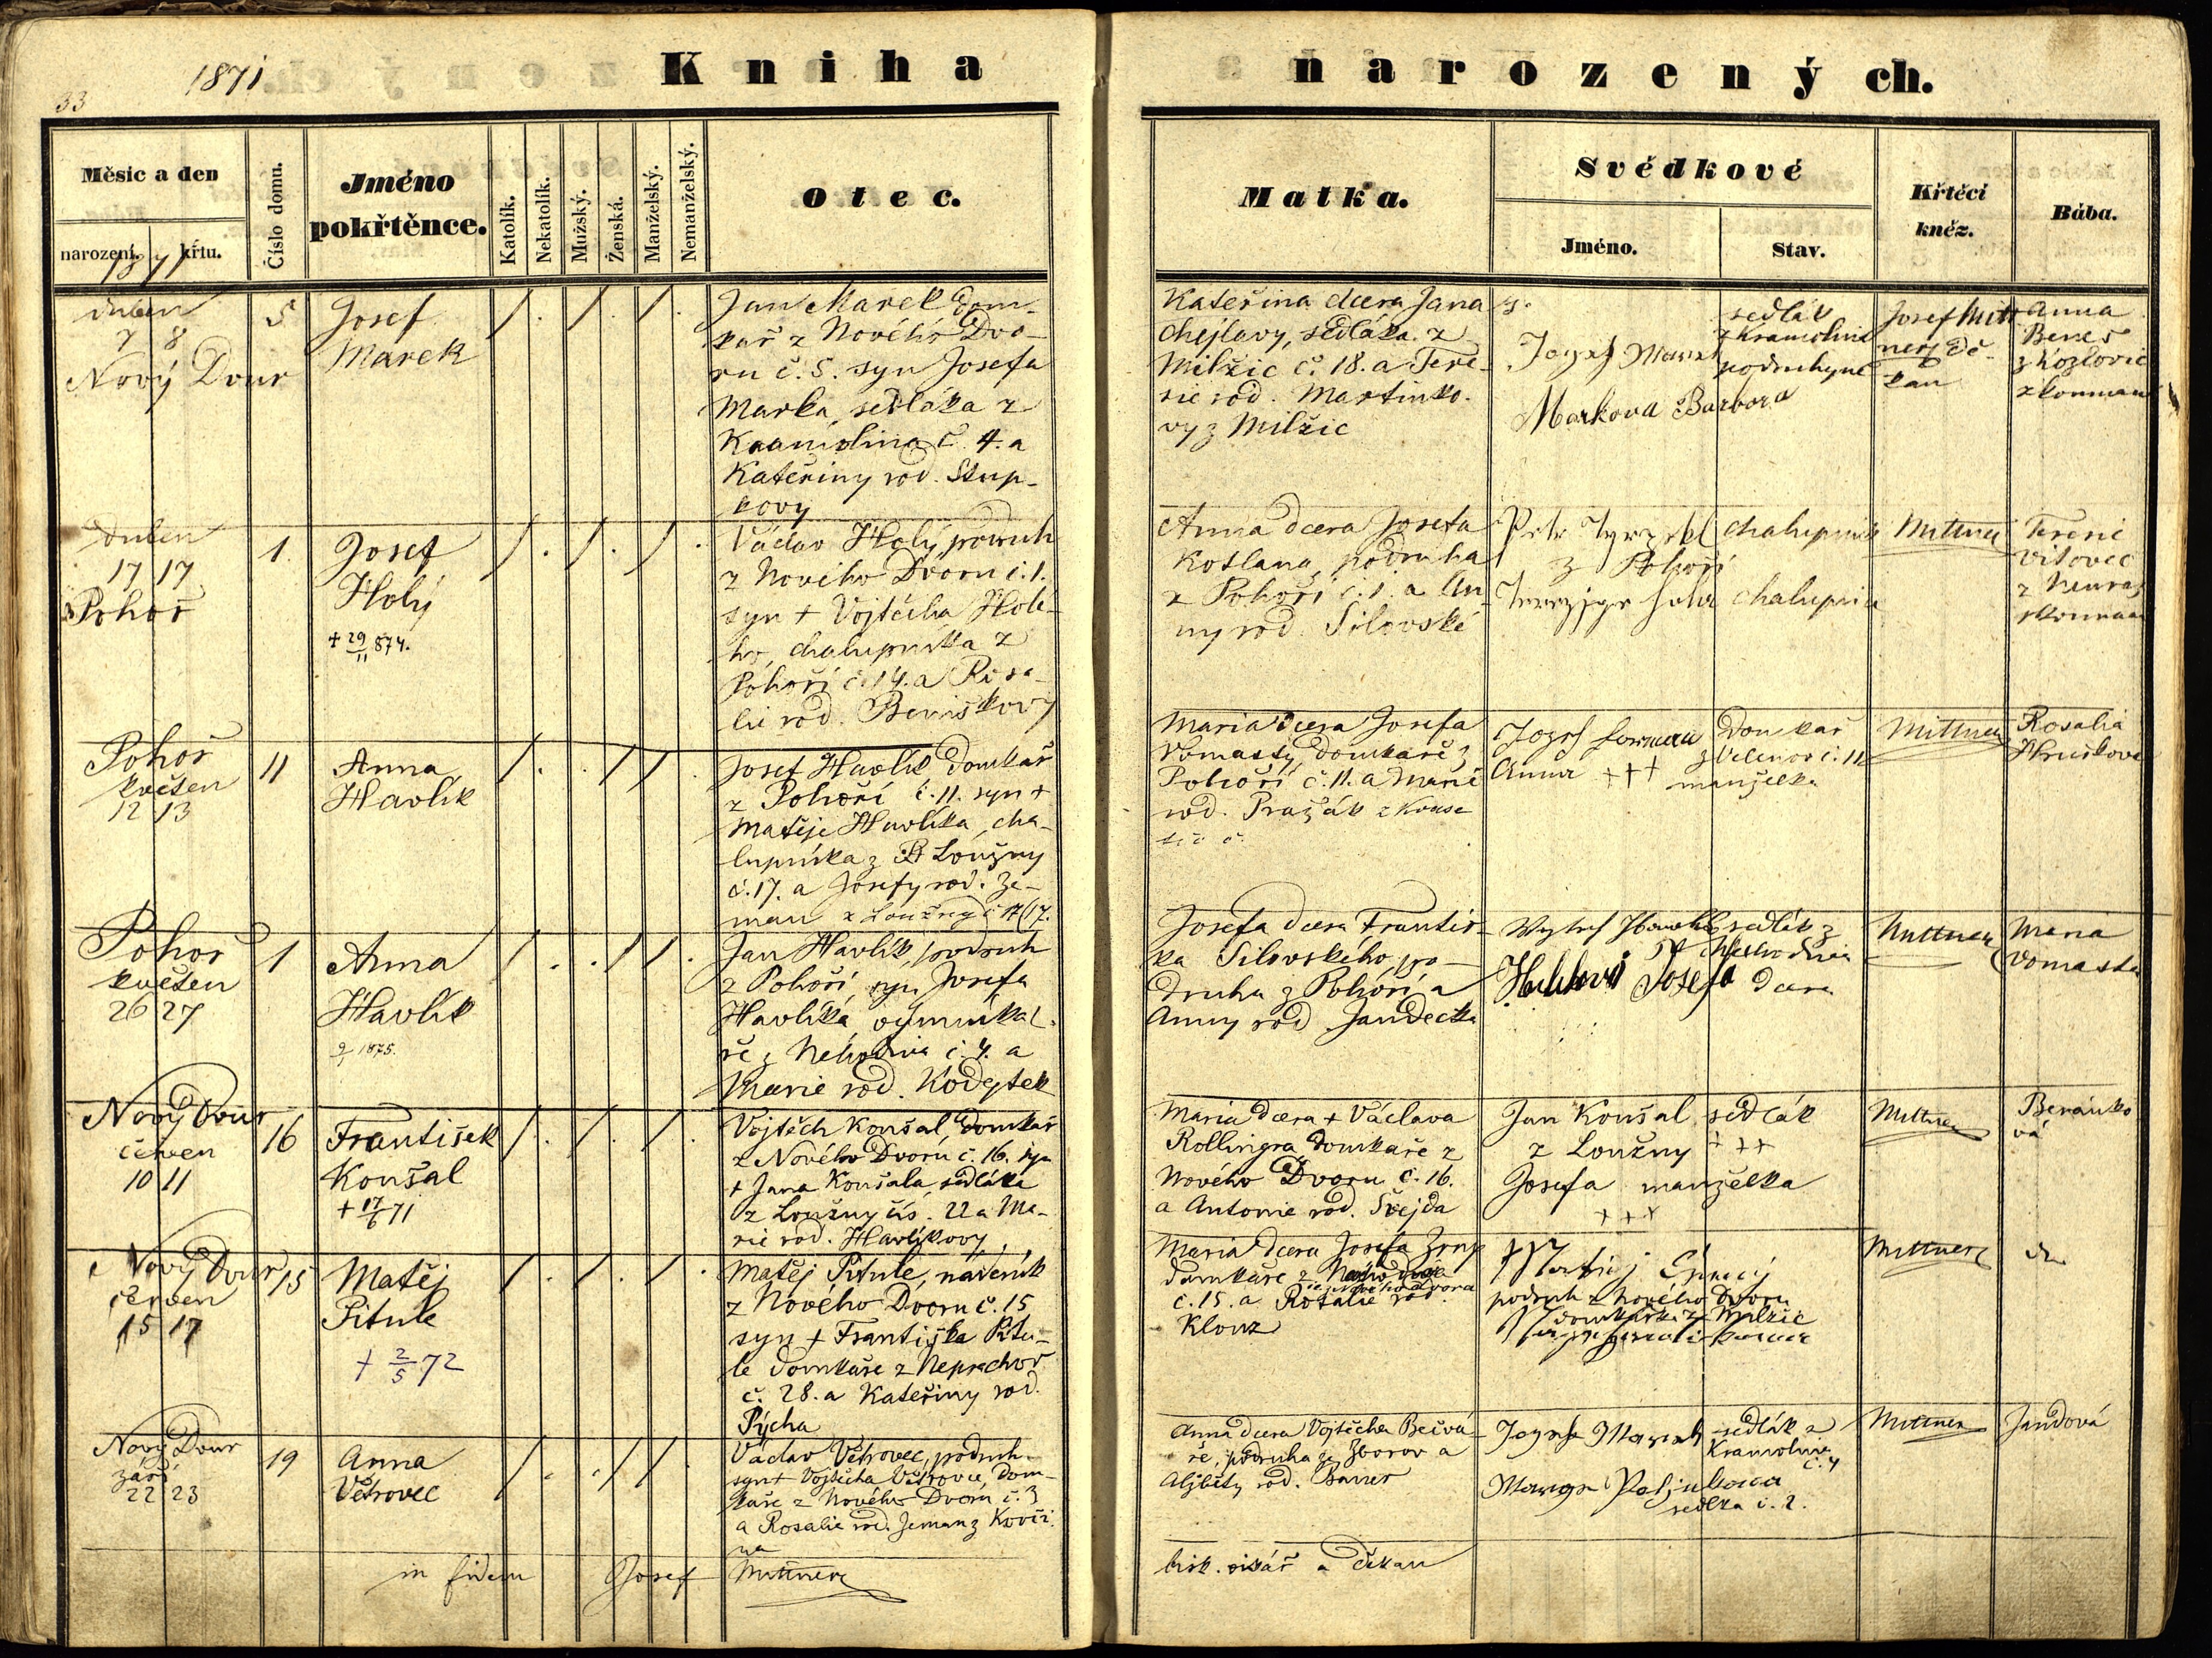 33
1871
Kniha
narozených.
Měsic a den
narození.
křtu.
1871
Číslo domu.
Jméno
pokřtěnce.
Katolík.
Nekatolík.
Mužský.
Ženská.
Manželský.
Nemanželský.
Otec.
Matka.
Svědkové
Jméno.
Stav.
Křtěcí
kněz.
Bába.
duben
7 8
Nový Dvur
5
Josef
Marek
Jan Marek dom-
kař z Nového Dvo-
ru č. 5. syn Josefa
Marka, sedláka z
Kramolina č. 4. a
Kateřiny rod. Stup-
kovy
Kateřina dcera Jana
Chejlavy, sedláka z
Milžic č. 18. a Tere-
sie rod. Martinko-
vy z Milžic
Josef Marek
Markova Barbora
sedlák
z Kramolina
podruhyně
Josef Mitt
ner, dě-
kan
Anna
Beneš
z Kozlovic
zkouman
duben
17 17
Pohoř
1.
Josef
Holý
+ 29/11 874.
Václav Holý, podruh
z Nového Dvoru č. 1.
syn + Vojtěcha Holé-
ho, chalupníka z
Pohoří č. 14. a Rosa-
lie rod. Beniškovy
Anna dcera Josefa
Kotlana, podruha
z Pohoří č. 1. a An-
ny rod. Silovské
Petr
z Pohoří
chalupník
chalupnice
Mittner
z Neuraz
zkouman
Pohoř
květen
12 13
11
Anna
Havlík
Josef Havlík domkař
z Pohoří č. 11. syn +
Matěje Havlíka, cha-
lupníka z Loužny
č. 17. a Josefy rod. Ze-
man z Loužny č 17.
Maria dcera Josefa
Vomasty, domkaře z
Pohoří č. 11. a Marie
rod. Pražák
Josef
Anna +++
Domkař
č. 11
manželka
Mittner
Rosalia
Hruškova
Pohoř
květen
26 27
1
Anna
Havlík
9/1 1875.
Jan Havlík, podruh
z Pohoří syn Josefa
Havlíka, výminká-
ře z Nehodiva č. 4. a
Marie rod. Kodýtek
Josefa dcera Františ-
ka Silovského, po-
druha z Pohoří a
Anny rod. Jandečka
sedlák z
Josefa dcera
Mittner
Maria
Vomasta
Nový Dvur
červen
10 11
16
František
Koušal
+ 17/6 71
Vojtěch Koušal domkař
z Nového Dvoru č. 16. syn
+ Jana Koušala, sedláka
z Loužny čís. 22 a Ma-
rie rod. Havlíkovy
Maria dcera + Václava
Rollingra domkaře z
Nového Dvoru č. 16.
a Antonie rod. Švejda
Jan Koušal, sedlák
z Loužny +++
Josefa manželka
+++
Mittner
Beránko
vá
Nový Dvur
červen
15 17
15
Matěj
Pitule
+ 2/5 72
Matěj Pitule, nádeník
z Nového Dvoru č. 15
syn + Františka Pitu-
le domkaře z Neprachov
č. 28. a Kateřiny rod.
Pýcha
Maria dcera Josefa
domkaře z Nového Dvora
č. 15. a Rosalie rod.
Klouz
podruh z Nového Dvoru
domkářka z Milžic
Mittner
Nový Dvur
září
22 23
19
Anna
Větrovec
Václav Větrovec, podruh
syn + Vojtěcha Větrovce, dom-
kaře z Nového Dvoru č. 3
a Rosalie rod. Zeman z Kovči-
na
Anna dcera Vojtěcha Bečvá-
ře, podruha ze Zborov a
Aljběty rod. Baner
Josef Marek
sedlák z
Kramolina
č. 4
sedlka č. 2.
Mittner
Jandová
in fidem Josef Mittner
bisk. vikář a děkan